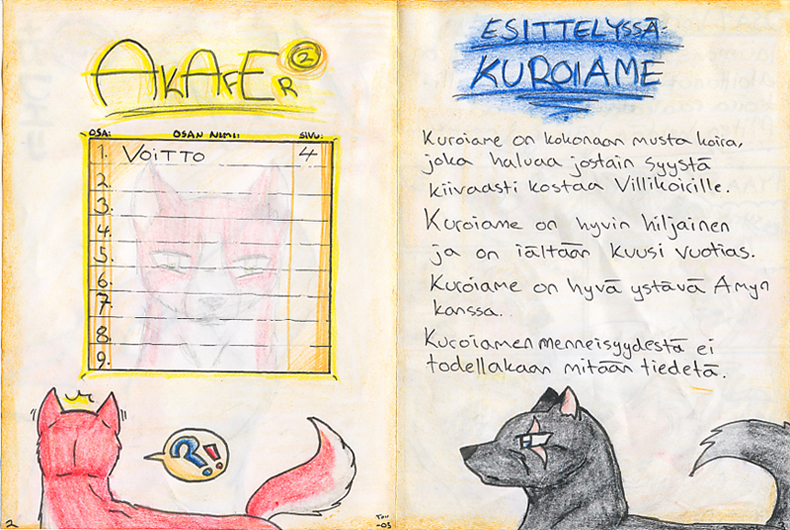 AKAFER 2
OSA: OSAN NIMI: SIVU:
1. VOITTO 4
2.
3.
4.
5.
6.
7.
8.
9.
?!
2
-03
ESITTELYSSÄ:
KUROIAME
Kuroiame on kokonaan musta koira,
joka haluaa jostain syystä
kiivaasti kostaa Villikoirille.
Kuroiame on hyvin hiljainen
ja on iältään kuusi vuotias.
Kuroiame on hyvä ystävä Amyn
kanssa.
Kuroiamen menneisyydestä ei
todellakaan mitään tiedetä.